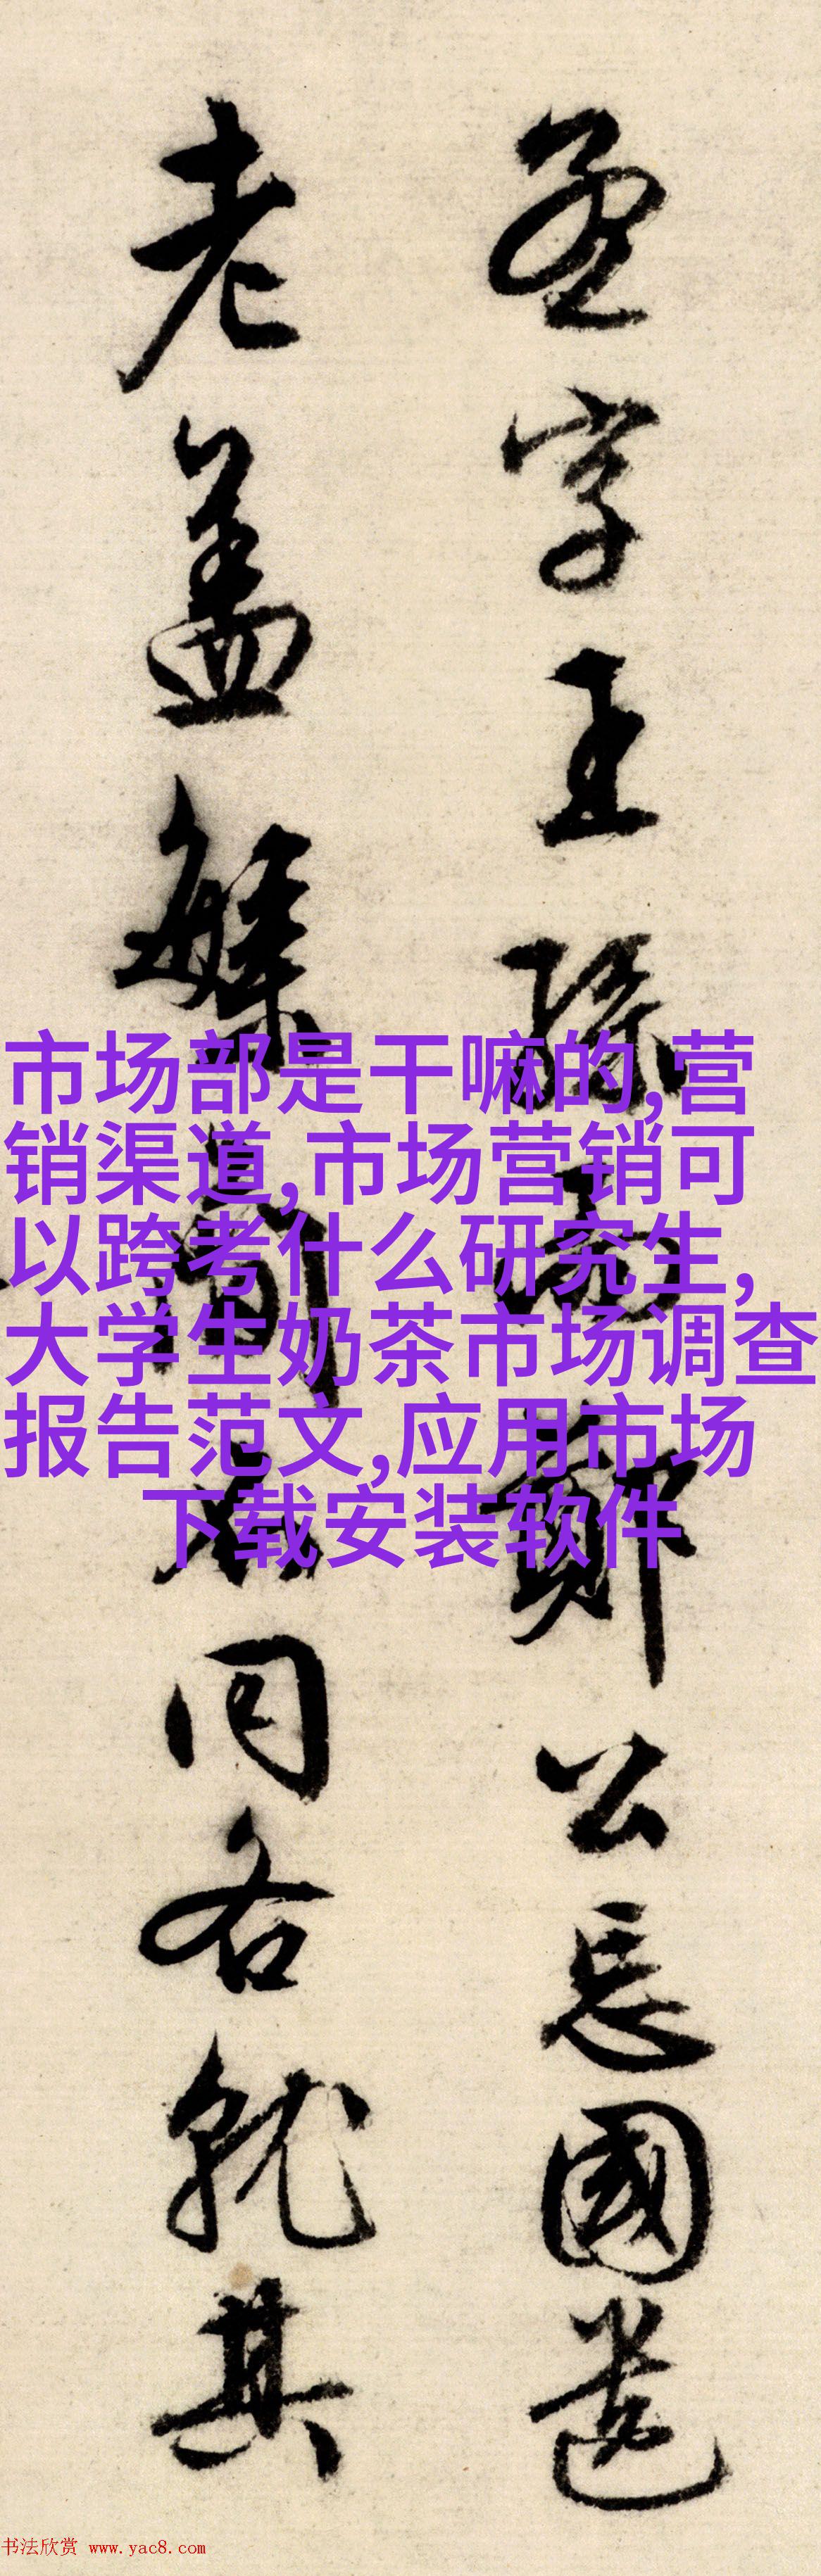 孟字王孫
鄭公忘國遺
老盖
同名就其
市场部是干嘛的,营
销渠道,市场营销可
以跨考什么研究生,
大学生奶茶市场调查
报告范文,应用市场
下载安装软件
书法欣赏 www.yac8.com